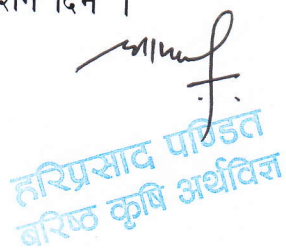 दिन ।
हरिप्रसाद पण्डित
बरिष्ठ कृषि अर्थविज्ञ